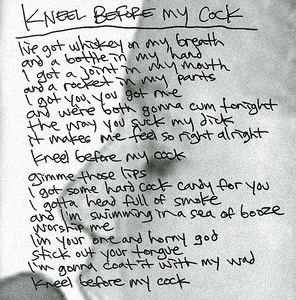 KNEEL BEFORE MY COCK
I've got whiskey on my breath
and a bottle in my hand
I got a joint in my mouth
and a rocket in my pants
I got you, you got me
and we're both gonna cum tonight
the way you suck my dick
it makes me feel so right alright
kneel before my cock
gimme those lips
I got some hard cock candy for you
I gotta head full of smoke
and I'm swimming in a sea of booze
worship me
I'm your one and horny god
stick out your tongue
I'm gonna coat it with my wad
kneel before my cock